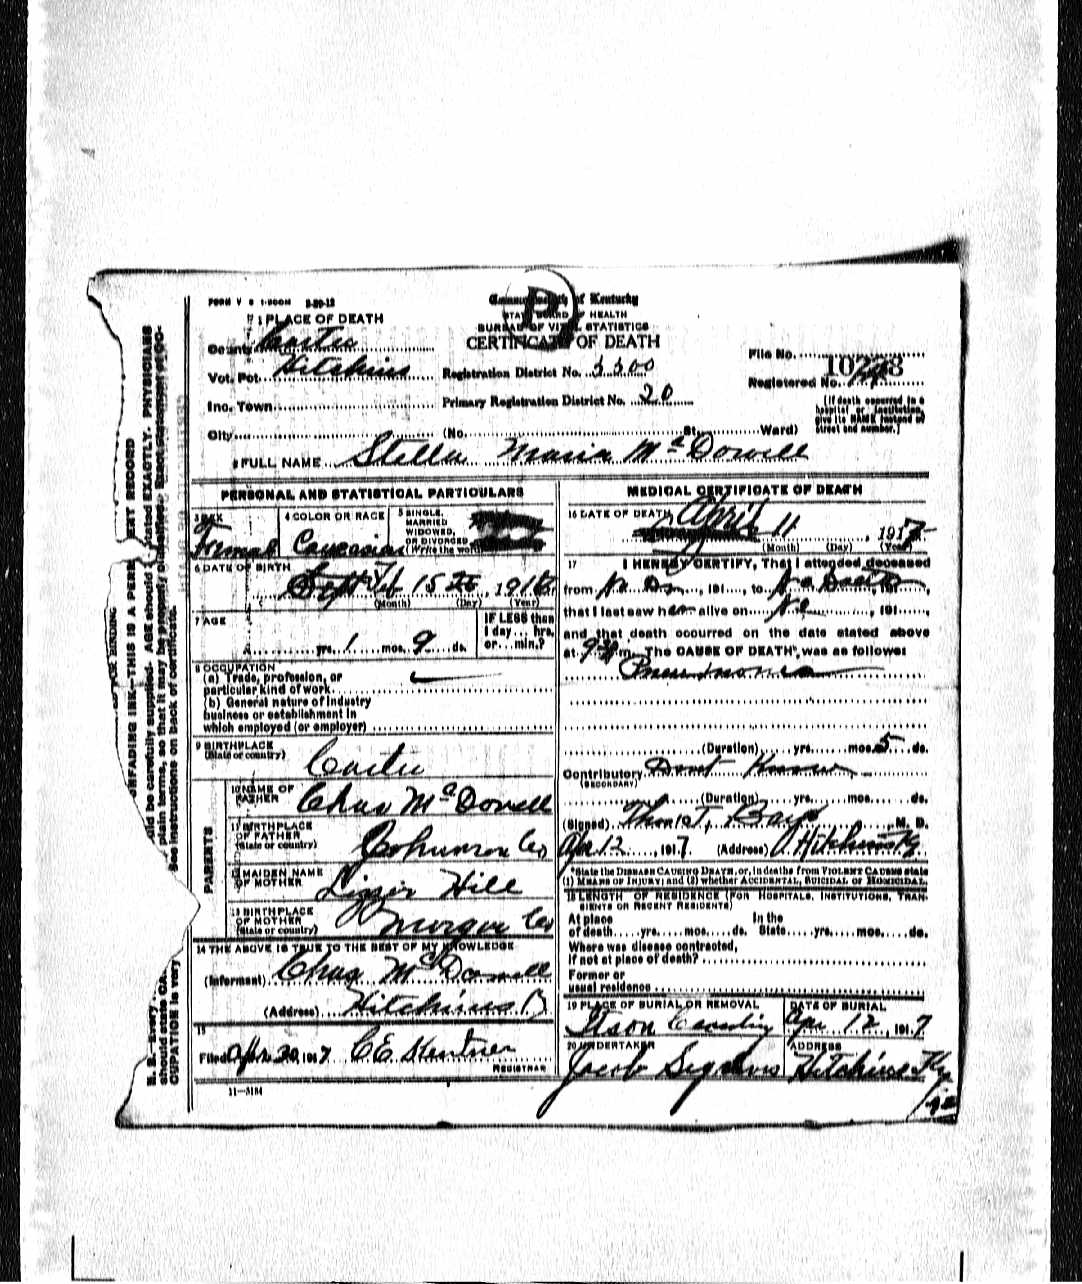 FORM V S 1-500M 8-20-12
Commonwealth of Kentucky
STATE BOARD OF HEALTH
BUREAU OF VITAL STATISTICS
CERTIFICATE OF DEATH
1 PLACE OF DEATH
County Carter
Vot. Pct. Hitchins
Registration District No. 5500
File No.
Registered No.
Inc. Town
Primary Registration District No. 20
(If death occurred in a hospital or institution, give its NAME instead of street and number.)
City (No. St. Ward)
2 FULL NAME Stella Maria McDowell
PERSONAL AND STATISTICAL PARTICULARS
3 SEX
Female
4 COLOR OR RACE
Caucasian
5 SINGLE, MARRIED WIDOWED, OR DIVORCED (Write the word)
6 DATE OF BIRTH
15 191
(Month) (Day) (Year)
7 AGE
yrs. 1 mos. 9 ds.
IF LESS then 1 day ... hrs. or ... min.?
8 OCCUPATION
(a) Trade, profession, or particular kind of work
(b) General nature of industry business or establishment in which employed (or employer)
9 BIRTHPLACE
(State or country)
Carter
PARENTS
10 NAME OF FATHER Chas McDowell
11 BIRTHPLACE OF FATHER (State or country) Johnson Co
12 MAIDEN NAME OF MOTHER Lizzie Hill
13 BIRTHPLACE OF MOTHER (State or country) Morgan Co
14 THE ABOVE IS TRUE TO THE BEST OF MY KNOWLEDGE
(Informant) Chas McDowell
(Address) Hitchins
15
Filed 1917 C E
REGISTRAR
11—3184
MEDICAL CERTIFICATE OF DEATH
16 DATE OF DEATH April 11, 1917
(Month) (Day) (Year)
17 I HEREBY CERTIFY, That I attended deceased
from No Dr, 191 , to No Doctor
that I last saw her alive on No, 191 ,
and that death occurred on the date stated above
at 9 m. The CAUSE OF DEATH*, was as follows:
Pneumonia
(Duration) yrs. mos. 5 ds.
Contributory Dont Know
(SECONDARY)
(Duration) yrs. mos. ds.
(Signed) Thos T. , M. D.
Apr 12, 1917 (Address) Hitchins Ky
*State the DISEASE CAUSING DEATH, or, in deaths from VIOLENT CAUSES state
(1) MEANS OF INJURY; and (2) whether ACCIDENTAL, SUICIDAL OR HOMICIDAL.
18 LENGTH OF RESIDENCE (FOR HOSPITALS, INSTITUTIONS, TRANSIENTS OR RECENT RESIDENTS)
At place of death yrs. mos. ds. In the State yrs. mos. ds.
Where was disease contracted,
if not at place of death?
Former or
usual residence
19 PLACE OF BURIAL OR REMOVAL
DATE OF BURIAL
Apr 12, 1917
20 UNDERTAKER
Jacob
ADDRESS
Hitchins Ky